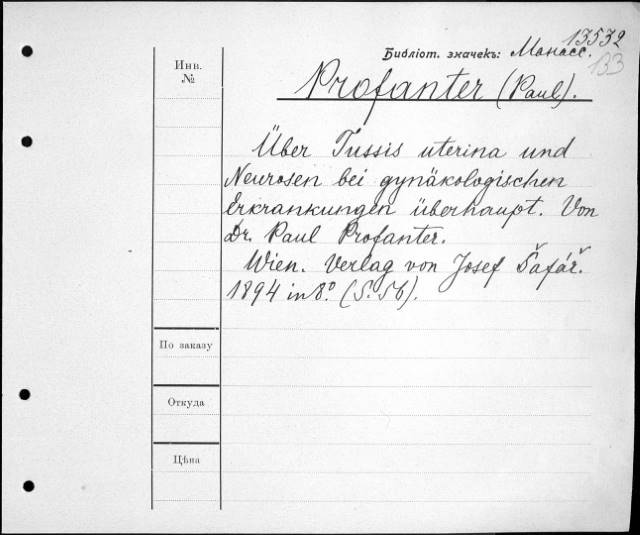 13532
Библіот. значекъ: Манасс.
133
Инв.
№
Profanter (Paul).
Über Tussis uterina und
Neurosen bei gynäkologischen
Erkrankungen überhaupt. Von
Dr. Paul Profanter.
Wien. Verlag von Josef Šafář.
1894 in 8.° (S. 56).
По заказу
Откуда
Цѣна